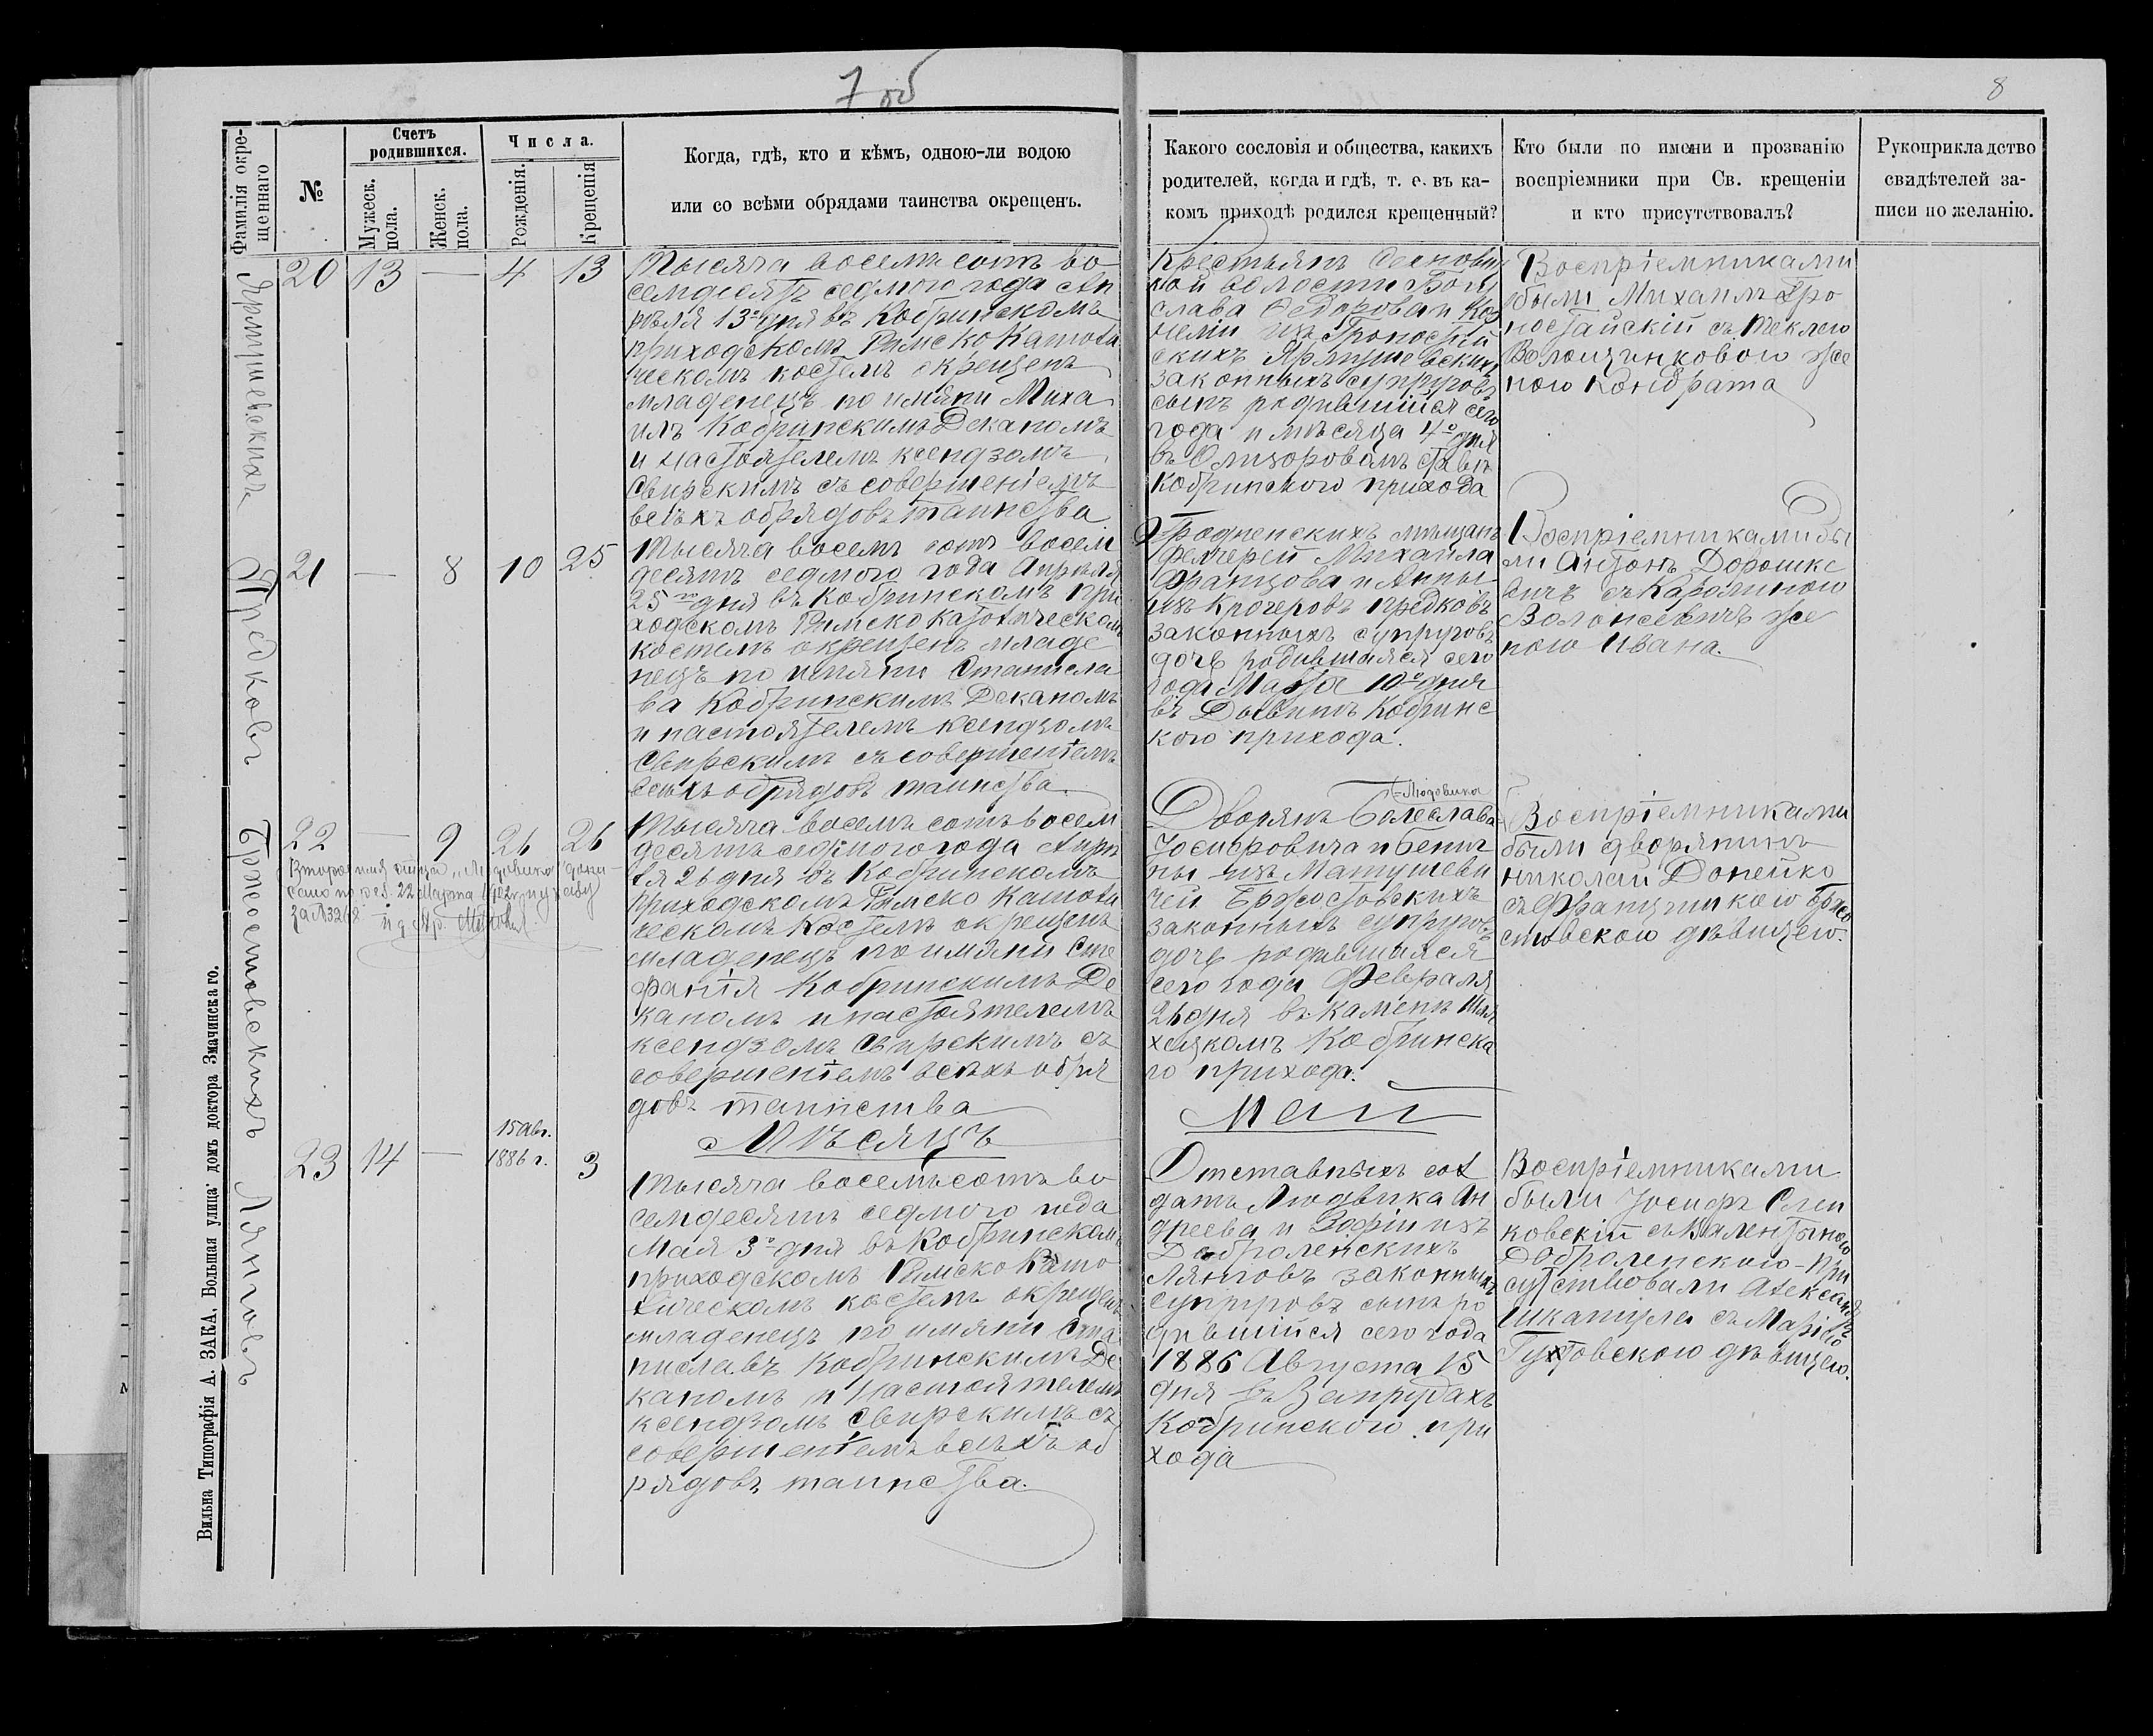 7 об
8
Фамилія окре-
щеннаго
№
Счетъ
родившихся.
Мужеск.
пола.
Женск.
пола.
Числа.
Рожденія.
Крещенія
Когда, гдѣ, кто и кѣмъ, одною-ли водою
или со всѣми обрядами таинства окрещенъ.
Какого сословія и общества, какихъ
родителей, когда и гдѣ, т. е. въ ка-
комъ приходѣ родился крещенный?
Кто были по имени и прозванію
воспріемники при Св. крещеніи
и кто присутствовалъ?
Рукоприкладство
свидѣтелей за-
писи по желанію.
Ярмушевскихъ
20 13 — 4 13
Тысяча восемь сотъ во
семдесятъ седмого года Ап
рѣля 13º дня въ Кобринскомъ
приходскомъ Римско Католи
ческомъ костелѣ окрещенъ
младенецъ по имяни Миха
илъ Кобринскимъ Деканомъ
и настоятелемъ ксендзомъ
Свирскимъ съ совершеніемъ
всѣхъ обрядовъ таинства
Крестьянъ
кой волости Боле
слава Федорова и Кор
неліи изъ Гроностай
скихъ Ярмушевскихъ
законныхъ супруговъ
сынъ родившійся сего
года и мѣсяца 4º дня
въ Олизаровомъ ставѣ
Кобринского прихода
Воспріемниками
были Михаилъ Гро
ностайскій съ Теклею
Волощинковою же
ною Кондрата
Предковъ
21 — 8 10 25
Тысяча восемь сотъ восем
десятъ седмого года Апрѣля
25го дня въ Кобринскомъ при
ходскомъ Римско Католическомъ
костелѣ окрещенъ младе
нецъ по имяни Станисла
ва Кобринскимъ Деканомъ
и настоятелемъ ксендзомъ
Свирскимъ съ совершеніемъ
всѣхъ обрядовъ таинства.
Гродненскихъ мѣщанъ
Михаила
Францова и Анны
изъ Крогеровъ Предковъ
законныхъ супруговъ
дочь родившаяся сего
года Марта 10º дня
въ Дывинѣ Кобринс
кого прихода.
Воспріемниками бы
ли Антонъ Дорошке
вичъ съ Каролиною
Волонсевичъ же
ною Ивана.
Бржостовскихъ
22 — 9 26 26
Второе имя отца „Людвика" впи-
сано по 22 Марта 1902 г.
за № 3268
Тысяча восемь сотъ восем
десятъ седмого года Апрѣ
ля 26 дня въ Кобринскомъ
приходскомъ Римско Католи
ческомъ Костелѣ окрещенъ
младенецъ по имяни Сте
фанія Кобринскимъ Де
каномъ и настоятелемъ
ксендзомъ Свирскимъ съ
совершеніемъ всѣхъ обря
довъ таинства
-Людвика
Дворянъ Болеслава
Іосифовича и Бениг
ны изъ Матушеви
чей Бржостовскихъ
законныхъ супруговъ
дочь родившаяся
сего года Февраля
26 дня въ Каменѣ Шля
хецкомъ Кобринска
го прихода.
Воспріемниками
были дворянинъ
Николай Донейко
съ Францишкою Бржо
стовскою дѣвицею.
Мѣсяцъ
Май
Лянговъ
23 14 — 15 Авг.
1886 г. 3
Тысяча восемьсотъ во
семдесятъ седмого года
Мая 3º дня въ Кобринскомъ
приходскомъ Римско Като
лическомъ костелѣ окрещенъ
младенецъ по имяни Ста
ниславъ Кобринскимъ Де
каномъ и Настоятелемъ
ксендзомъ Свирскимъ съ
совершеніемъ всѣхъ об
рядовъ таинства.
Отставныхъ сол
датъ Людвика Ан
дреева и Зофіи изъ
Доброленскихъ
Лянговъ законныхъ
супруговъ сынъ ро
дившійся сего года
1886 Августа 15
дня въ Запрудахъ
Кобринского при
хода
Воспріемниками
были Іосифъ Слен
ковскій съ Валентыною
Доброленскою - При
сутствовали Александръ
Шкапцъ съ Маріею
Гутовскою дѣвицею.
Вильна Типографія А. ЗАКА. Большая улица домъ доктора Змачинскаго.